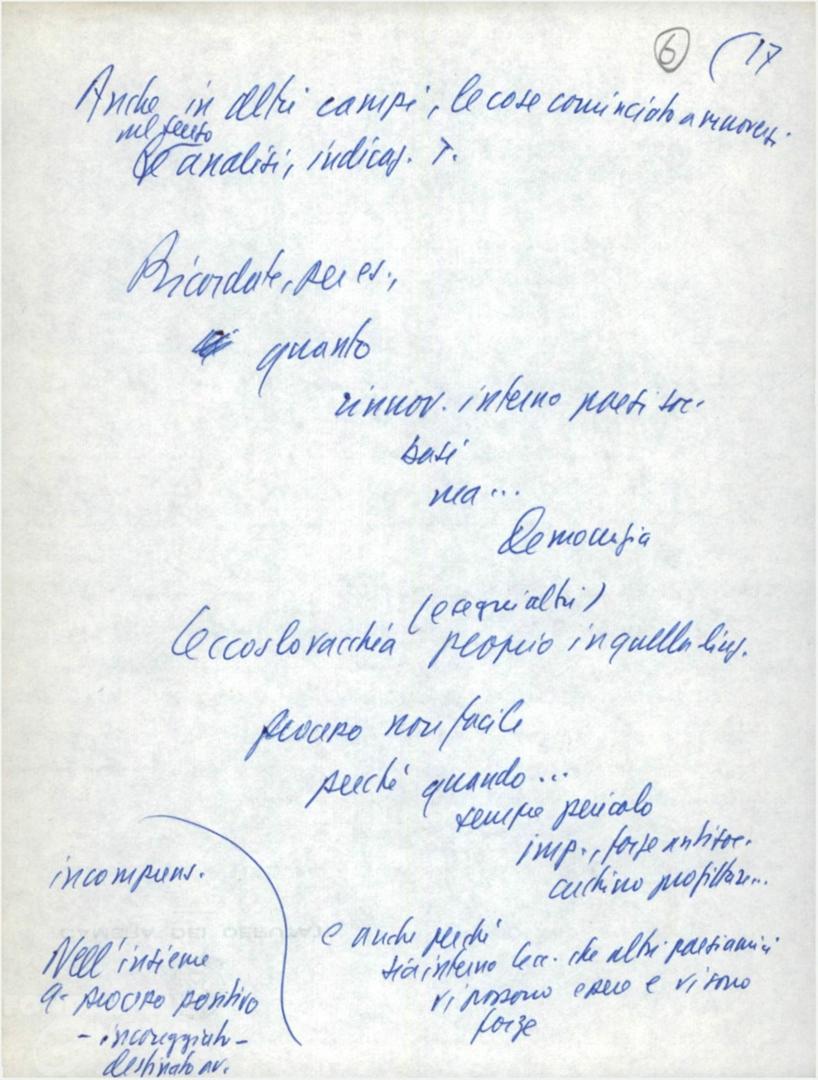 6 (17
Anche in altri campi, le cose cominciato a muoversi
nel senso
analisi, indicaz. T.
Ricordate, per es.,
quanto
rinnov. interno paesi soc.
basi
ma...
Democrazia
(e legni altri)
Cecoslovacchia proprio in quella linea.
processo non facile
perché quando...
sempre pericolo
imp., forze antisoc.
cerchino profittare...
incompens.
e anche perché
sia interno Cec. che altri paesi amici
vi possono essere e vi sono
forze
Nell'insieme
q. processo positivo
- incoraggiato -
destinato av.